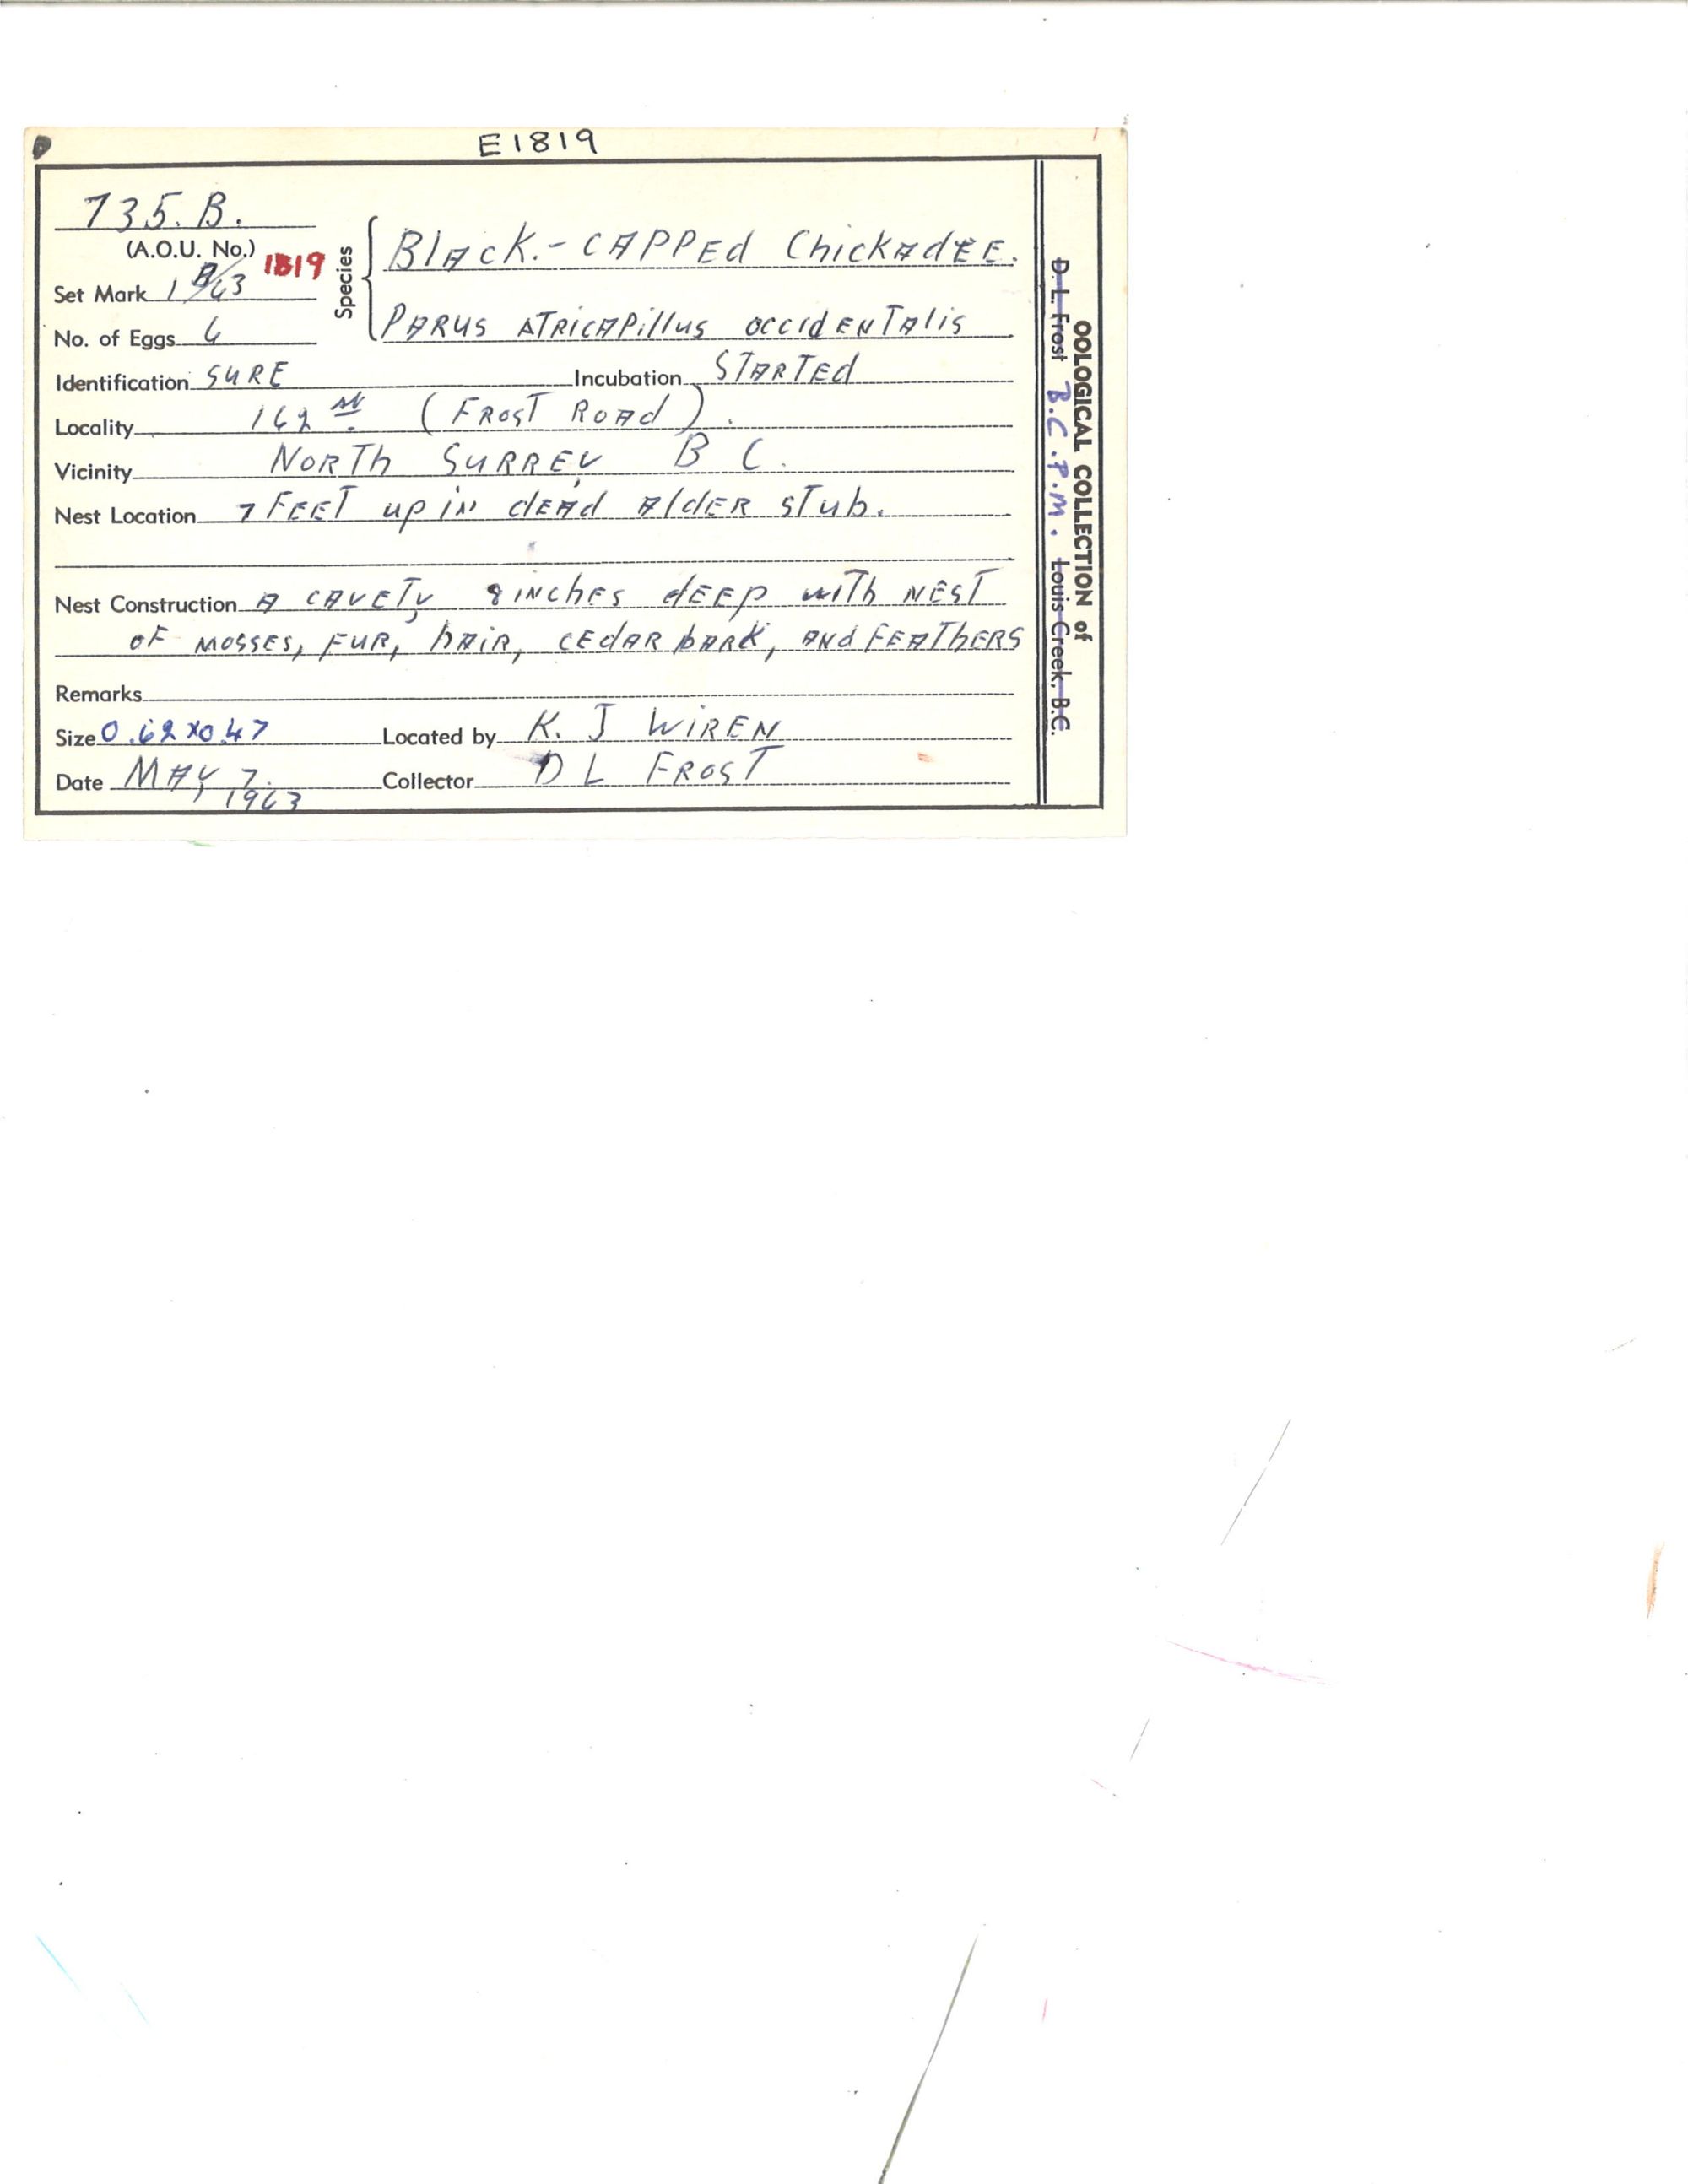 E1819
735.B.
(A.O.U. No.)
1819
Set Mark 1 A/63
No. of Eggs 6
Species
Black.-CAPPEd ChickAdEE.
PARUS ATRICAPillus occidENTAlis
Identification SURE Incubation STARTEd
Locality 162 (FROST ROAd).
Vicinity NORTh SURREY B C.
Nest Location 7 FEET up iN dEAd AldER sTub.
Nest Construction A CAVETY 8 INChES dEEp wiTh NEST
OF MOSSES, FUR, hAIR, CEdAR bARK, ANd FEAThERS
Remarks
Size 0.62 x 0.47 Located by K. J WiREN
Date MAY 7. Collector D L FROST
1963
OOLOGICAL COLLECTION of
D. L. Frost B.C.P.M. Louis Creek, B.C.